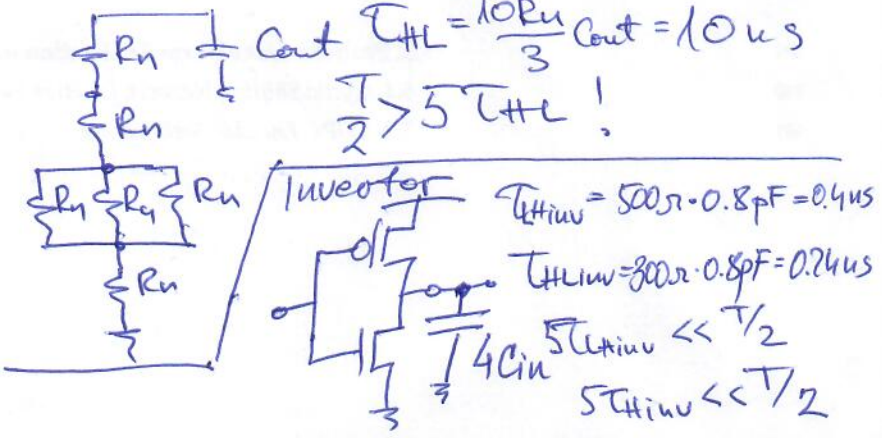 Rn
Cout
τHL = 10Rn/3 Cout = 10 ns
Rn
T/2 > 5 τHL !
Rn Rn Rn
Rn
Inverter
τLHinv = 500Ω · 0.8pF = 0.4ns
τHLinv = 300Ω · 0.8pF = 0.24ns
4Cin
5τLHinv << T/2
5τHinv << T/2